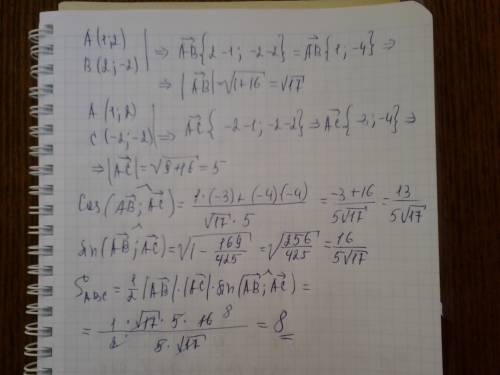 A(1;2)
B(2;-2) | ⇒ AB{2-1; -2-2} = AB{1; -4} ⇒
⇒ |AB| = √1+16 = √17
A(1;2)
C(-2;-2) | ⇒ AC{-2-1; -2-2} ⇒ AC{-3; -4} ⇒
⇒ |AC| = √9+16 = 5
Cos(AB; AC) = 1·(-3)+(-4)(-4) / √17·5 = -3+16 / 5√17 = 13 / 5√17
Sin(AB; AC) = √1 - 169/425 = √256/425 = 16 / 5√17
S ABC = 1/2 |AB|·|AC|·Sin(AB; AC) =
= 1·√17·5·16 8 / 2 · 5·√17 = 8